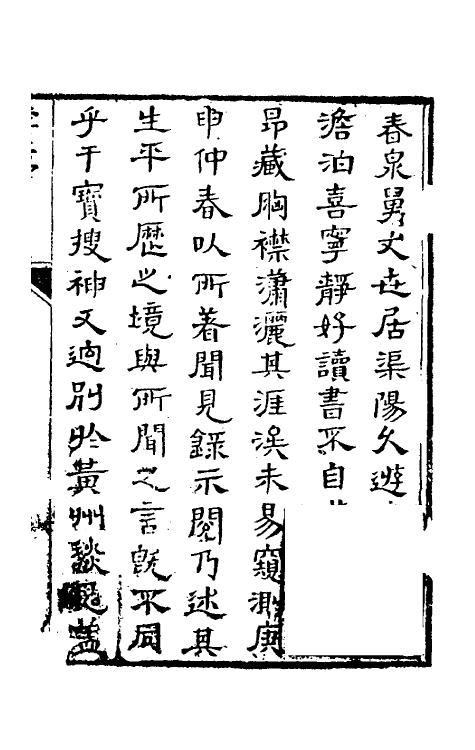 春泉舅丈世居渠陽久遊
澹泊喜寧靜好讀書不自
昂藏胸襟瀟灑其涯涘未易窺測庚
申仲春以所著聞見錄示閱乃述其
生平所歷之境與所聞之言旣不同
乎干寶搜神又逈別於黃州談鬼蓋